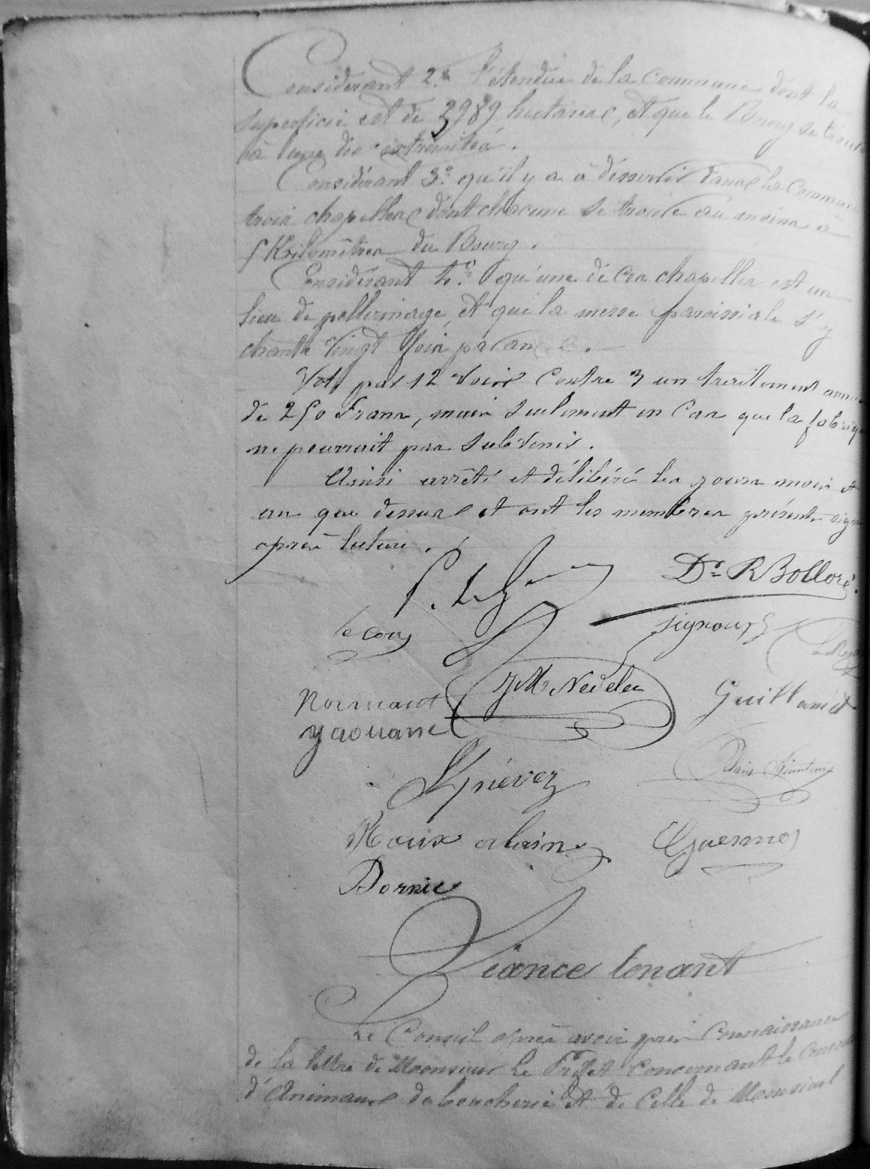 Considérant 2.º l'étendue de la Commune dont la
superficie est de 2989 hectares, et que le Bourg se trouve
à une des extrémités.
Considérant 3º qu'il y a à desservir dans la Commune
trois chapelles dont chacune se trouve au moins à
5 Kilomètres du Bourg.
Considérant 4.º qu'une de ces chapelles est un
lieu de pellerinage et que la messe paroissiale s'y
chante vingt fois par an.
Vote par 12 voix Contre 3 un traitement
de 250 Frans, mais seulement en Cas que la fabrique
ne pourrait pas Subvenir.
Ainsi arrêté et délibéré les jours mois et
an que dessus et ont les membres présents signé
après lecture.
Dr RBolloré
le cong
Signour
Normant
JM Nedelec
Guillamet
yaouanc
Kouix alain
Guennoc
Bornic
Séance tenant
Le Conseil après avoir pris Connaissance
de la lettre de Monsieur le Préfet Concernant le
d'Animaux de boucherie et de Celle de Monsieur